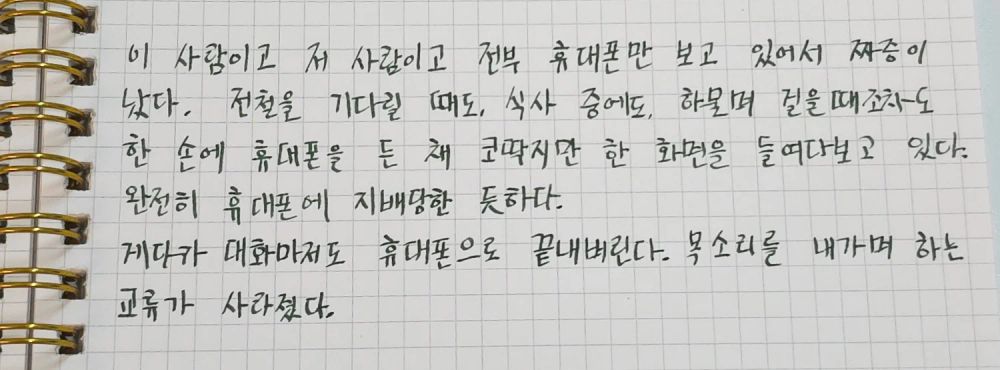 이 사람이고 저 사람이고 전부 휴대폰만 보고 있어서 짜증이
났다. 전철을 기다릴 때도, 식사 중에도, 하물며 걸을때조차도
한 손에 휴대폰을 든 채 코딱지만 한 화면을 들여다보고 있다.
완전히 휴대폰에 지배당한 듯하다.
게다가 대화마저도 휴대폰으로 끝내버린다. 목소리를 내가며 하는
교류가 사라졌다.